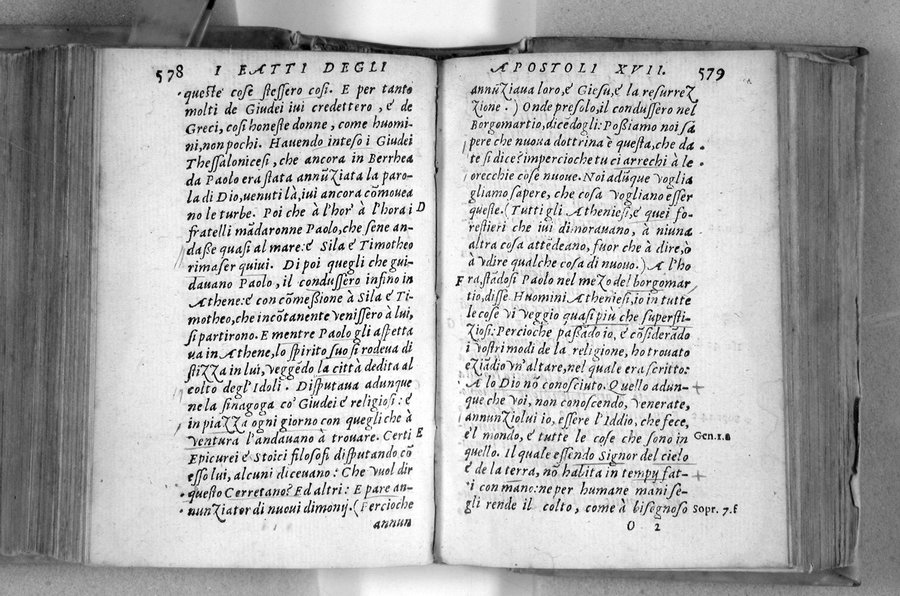 578 I FATTI DEGLI
queste cose stessero cosi. E per tanto
molti de Giudei ivi credettero, e de
Greci, cosi honeste donne, come huomi-
ni, non pochi. Havendo inteso i Giudei
Thessalonicesi, che ancora in Berrhea
da Paolo era stata annũziata la paro-
la di Dio, venuti là, ivi ancora cõmovea
no le turbe. Poi che à l'hor' à l'hora i D
fratelli mãdaronne Paolo, che sene an-
dasse quasi al mare: é Sila é Timotheo
rimaser quivi. Di poi quegli che gui-
davano Paolo, il condussèro infino in
Athene: é con cõmessione à Sila é Ti-
motheo, che incõtanente venissèro à lui,
si partirono. E mentre Paolo gli aspetta
va in Athene, lo spirito suo si rodeva di
stizza in lui, veggẽdo la città dedita al
colto degl'Idoli. Disputava adunque
ne la sinagoga co' Giudei é religiosi: é
in piazza ogni giorno con quegli che à
ventura l'andavano à trovare. Certi E
Epicurei é Stoici filosofi disputando cõ
esso lui, alcuni dicevano: Che vuol dir
questo Cerretano? Ed altri: E pare an-
nunziator di nuovi dimonij. (Percioche
annun
APOSTOLI XVII. 579
annũziava loro, é Giesu, é la resurrez
zione.) Onde presolo, il condussèro nel
Borgomartio, dicẽdogli: Possiamo noi sa
pere che nuova dottrina è questa, che da
te si dice? imperciochè tu ci arrechi à le
orecchie cose nuove. Noi adũque voglia
gliamo sapere, che cosa vogliano esser
queste. (Tutti gli Atheniesi, é quei fo-
restieri che ivi dimoravano, à niuna
altra cosa attẽdeano, fuor che à dire, ò
à vdire qualche cosa di nuovo.) A l'ho
F ra, stãdosi Paolo nel mezo del borgomar
tio, disse. Huomini Atheniesi, io in tutte
le cose vi veggio quasi più che supersti-
ziosi: Percioche passãdo io, é cõsiderãdo
i vostri modi de la religione, ho trovato
eziãdio vn'altare, nel quale era scritto:
A lo Dio nõ conosciuto. Quello adun-
que che voi, non conoscendo, venerate,
annunziolvi io, essere l'iddio, che fece,
él mondo, é tutte le cose che sono in Gen.1.a
quello. Il quale essendo Signor del cielo
é de la terra, nõ habita in tempij fat-
ti con mano: ne per humane mani se-
gli rende il colto, come à bisegnoso Sopr. 7.f
O 2